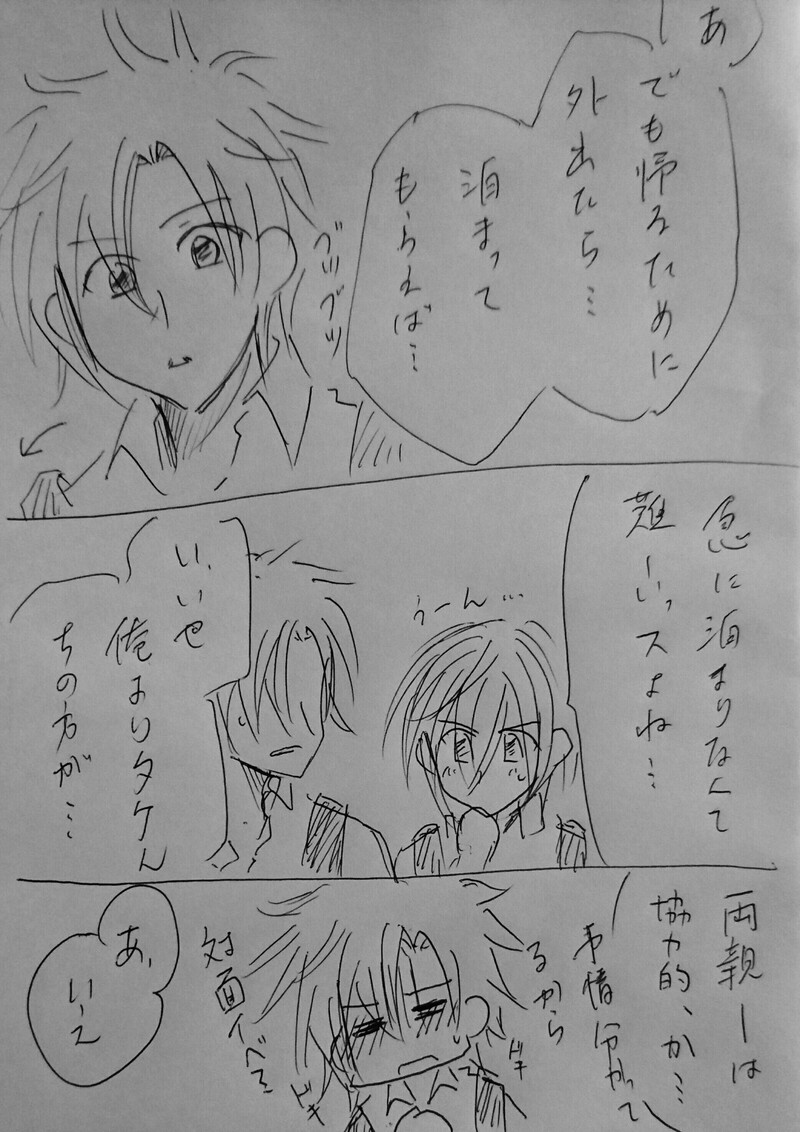 あ
でも帰るために
外出たら…
泊まって
もらえば…
グツグツ
急に泊まりなんて
難しいっスよね…
うーん…
い、いや
俺よりタケん
ちの方が…
両親ーは
協力的、か…
事情分かって
るから
ドキ
ドキ
対面イベ…
あ、
いーえ